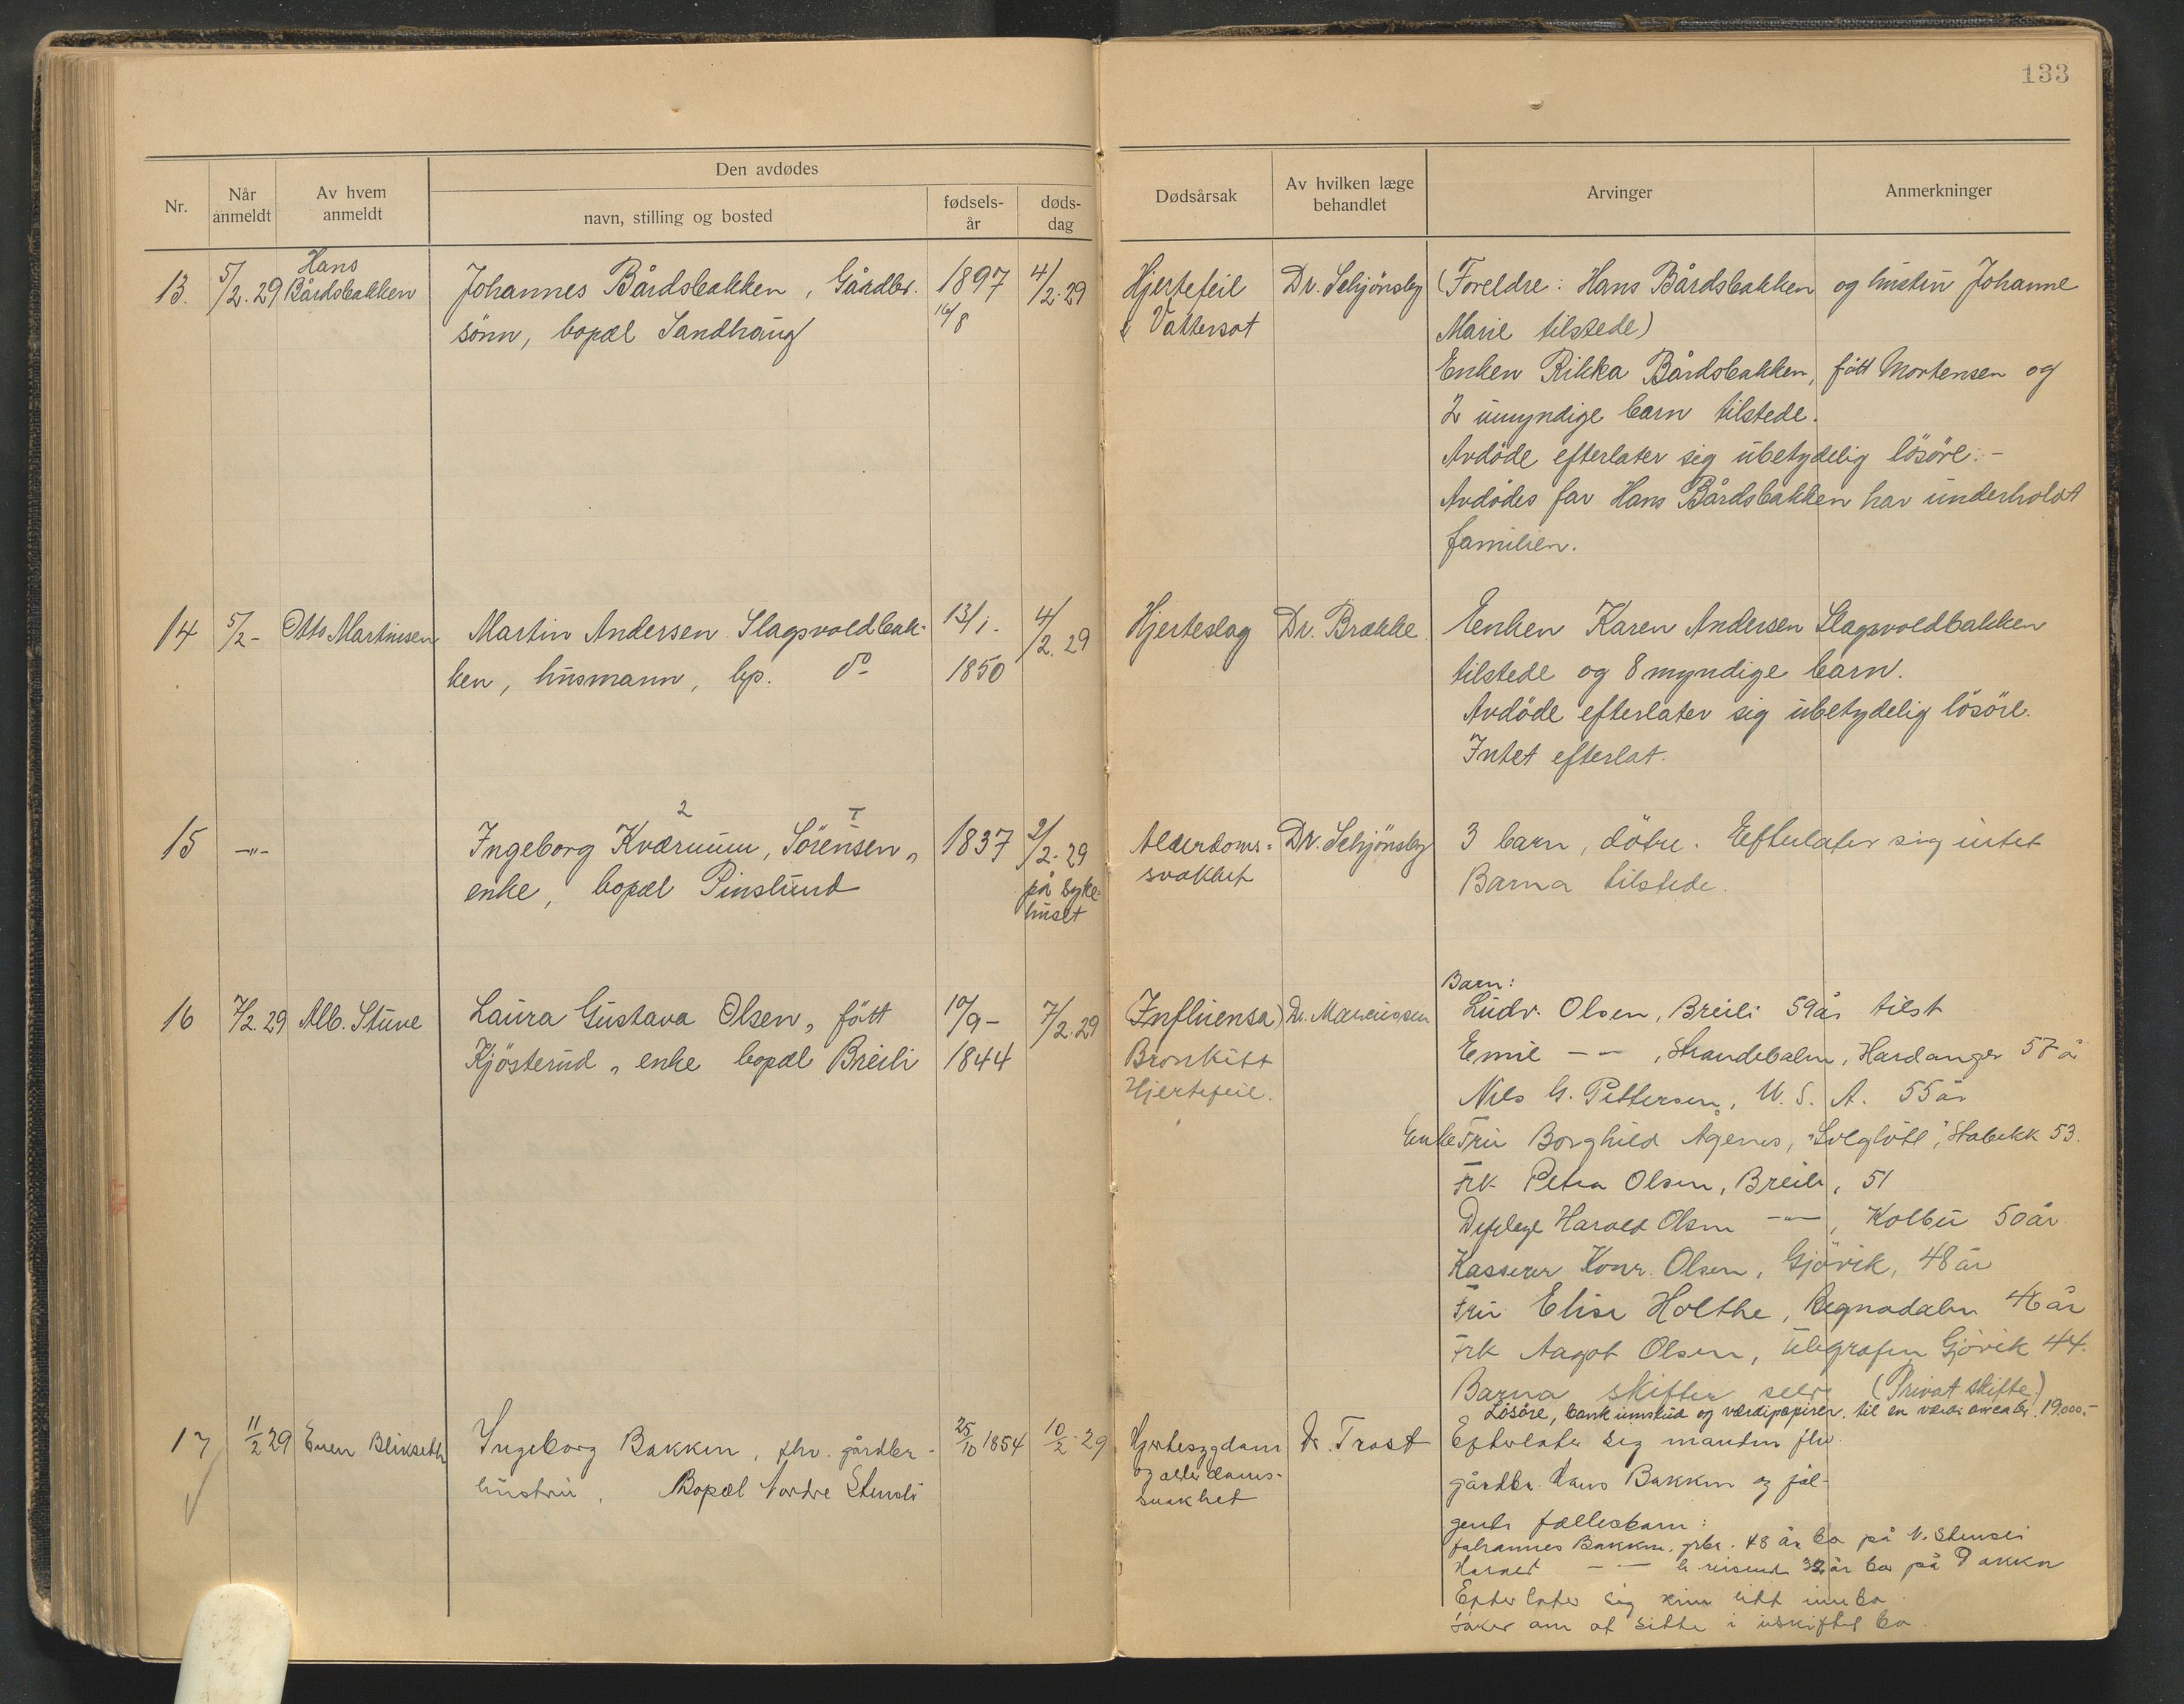 133
Den avdødes
Nr.
Når anmeldt
Av hvem anmeldt
navn, stilling og bosted
fødsels-år
døds-dag
Dødsårsak
Av hvilken læge behandlet
Arvinger
Anmerkninger
13. 5/2.29 Hans Bårdsbakken
Johannes Bårdsbakken, Gårdbr.
sönn, bopæl Sandhaug
1897
16/8
4/2.29
Hjertefeil
& Vattersot
Dr. Schjönsby
(Foreldre: Hans Bårdsbakken og hustru Johanne
Marie tilstede)
Enken Rikka Bårdsbakken, fött Mortensen og
2 umyndige barn tilstede.
Avdöde efterlater sig ubetydelig lösöre.-
Avdödes far Hans Bårdsbakken har underholdt
familien.
14 5/2- Otto Martinsen
Martin Andersen Slagsvoldbak-
ken, husmann, bp. do
13/1.
1850
4/2.29
Hjerteslag
Dr. Brække
Enken Karen Andersen Slagsvoldbakken
tilstede og 8 myndige barn.
Avdöde efterlater sig ubetydelig lösöre.
Intet efterlat.
15 -"-
2
Ingeborg Kværnum, Sörensen,
enke, bopæl Pinslund
1837
2/2.29
på syke-
huset
Alderdoms-
svakhet
Dr. Schjönsby
3 barn, dötre. Efterlater sig intet
Barna tilstede.
16 7/2.29 Alb. Stuve
Laura Gustava Olsen, fött
Kjösterud, enke bopæl Breili
10/9-
1844
7/2.29
Influensa)
Bronkitt
Hjertefeil.
Dr. Marcussen
Barn:
Ludv. Olsen, Breili 59 år tilst
Emil -"-, Strandebalm, Hardanger 57 å
Nils G. Pettersen, U.S.A. 55 år
Enke Fru Borghild Ågenes, "Solglött", Stabekk 53.
Frk Petra Olsen, Breili, 51
Harald Olsen -"-, Kolbu 50 år
Kasserer Konr. Olsen, Gjövik, 48 år
Fru Elise Holthe, Begnadalen 46 år
Frk Aagot Olsen, telegrafen Gjövik 44.
Barna skifter selv (Privat skifte)
Lösöre, bankinnskud og værdipapirer. til en værdi av ca kr. 19.000.-
17 11/2 29 Even Blikseth
Ingeborg Bakken, fhv. gårdbr-
hustru, Bopæl Nordre Stensli
25/10 1854
10/2-29
Hjertesygdom
og alderdoms-
svakhet
Dr. Trost
Efterlater sig manden fhv.
gårdbr. Hans Bakken og föl-
gende fællesbarn:
Johannes Bakken, gbr. 48 år bo på N. Stensli
Harald - - h. reisende 32 år bor på Bakken
Efterlater sig kun litt innbo
söker om at sitte i uskiftet bo.